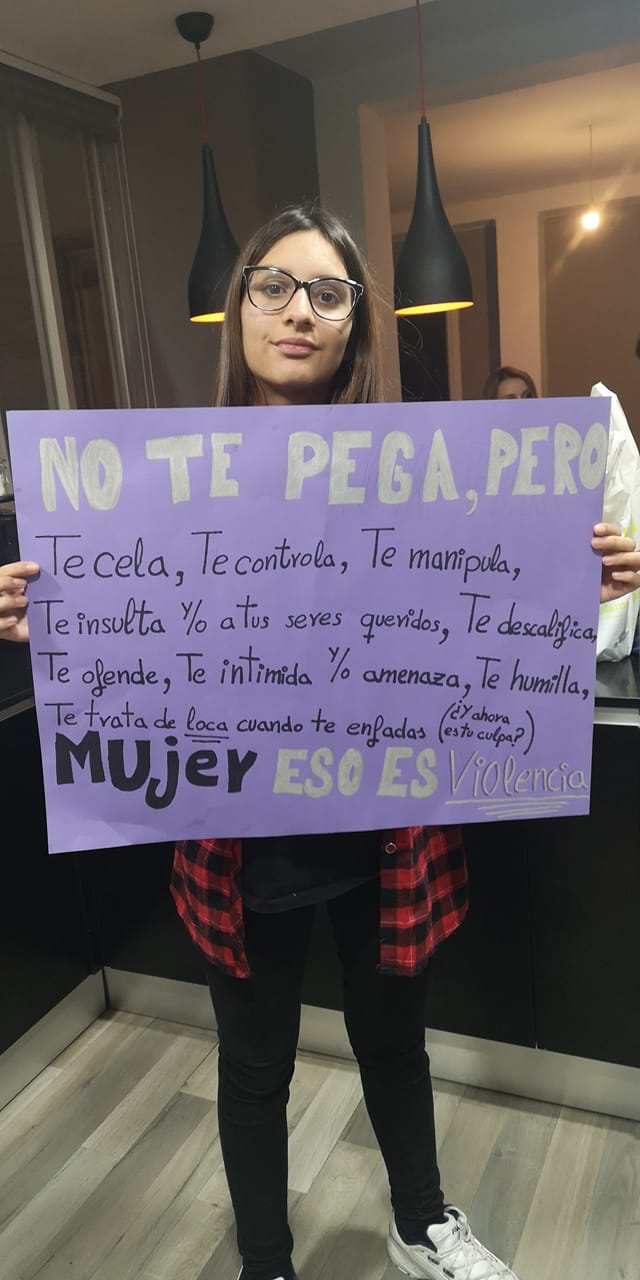 NO TE PEGA, PERO
Te cela, Te controla, Te manipula,
Te insulta y/o a tus seres queridos, Te descalifica,
Te ofende, Te intimida y/o amenaza, Te humilla,
Te trata de loca cuando te enfadas (¿Y ahora es tu culpa?)
Mujer ESO ES Violencia